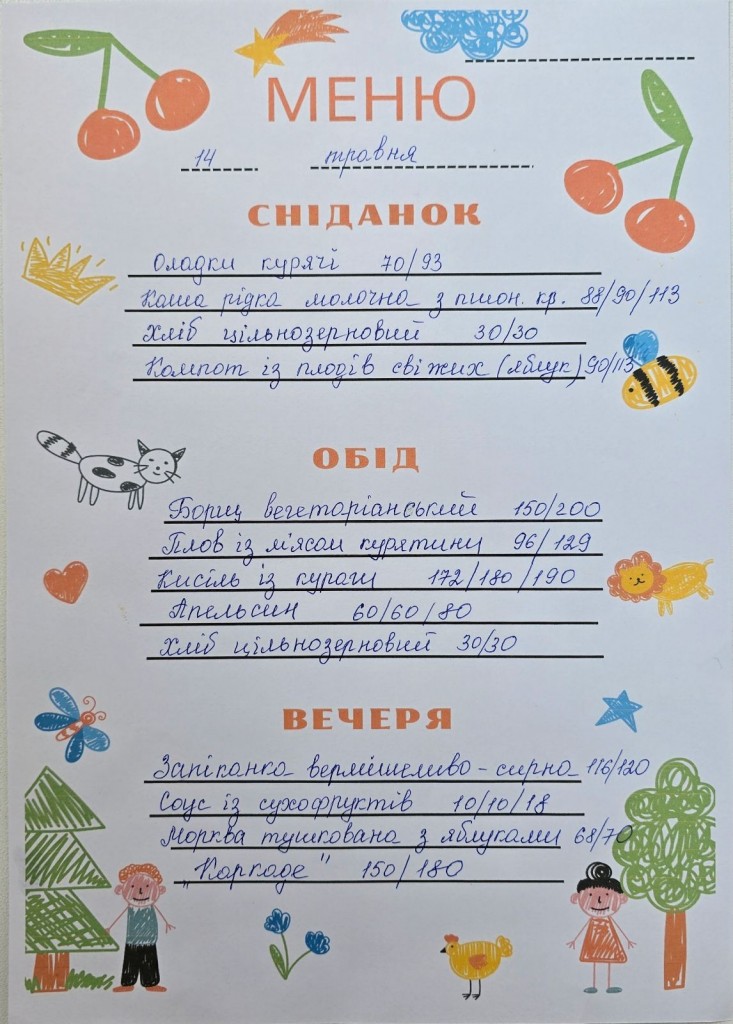 МЕНЮ
14 травня
СНІДАНОК
Оладки курячі 70/93
Каша рідка молочна з пшон. кр. 88/90/113
Хліб цільнозерновий 30/30
Компот із плодів свіжих (яблук) 90/113
ОБІД
Борщ вегетаріанський 150/200
Плов із м'ясом курятини 96/129
Кисіль із кураги 172/180/190
Апельсин 60/60/80
Хліб цільнозерновий 30/30
ВЕЧЕРЯ
Запіканка вермішелево-сирна 116/120
Соус із сухофруктів 10/10/18
Морква тушкована з яблуками 68/70
„Каркаде" 150/180